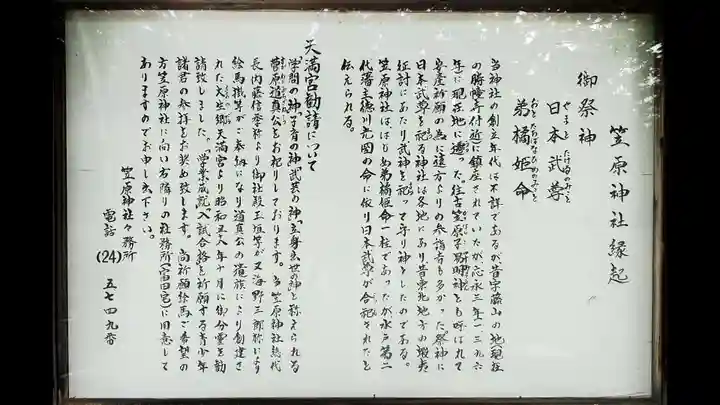 笠原神社縁起
御祭神
日本武尊
やまと たけるのみこと
弟橘姫命
おとたちばなひめのみこと
当神社の創立年代は不詳であるが昔字藤山の地(現在
の勝幢寺付近に鎮座されていたが応永三年一三九六
年に現在地に遷った。往古笠原子易明神とも呼ばれて
安産祈願の為に遠方よりの参詣者も多かった。祭神に
日本武尊を祀る神社は各地にあり昔東北地方の蝦夷
征討にあたり武神を祀って守り神としたのである。
笠原神社ははじめ弟橘姫命一柱であったが水戸第二
代藩主徳川光圀の命に依り日本武尊が合祀されたと
伝えられる。
天満宮勧請について
学問の神、子育の神、武芸の神、立身出世の神と称えられる
菅原道真公をお祀りしております。当笠原神社総代
長内藤信季称より御社殿玉垣等が又海野三郎称により
絵馬掛等がご奉納になり道真公の遺族により創建さ
れた大生郷天満宮より昭和五八年十月に御分霊を勧
請致しました。学業成就、入試合格を祈願する青少年
諸君の参拝をお奨め致します。尚祈願絵馬ご希望の
方笠原神社に向い右隣りの社務所(富田宅)に用意して
ありますのでお申し出下さい。
笠原神社々務所
電話 (24) 五七四九番